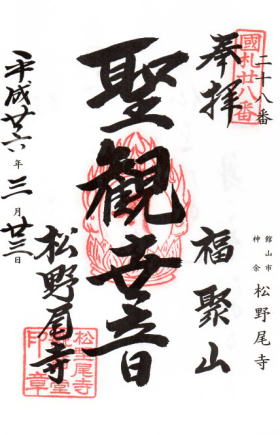 奉拝
二十八番
國札廿八番
福聚山
館山市
神余
松野尾寺
聖観世音
平成廿六年三月廿三日
松野尾寺